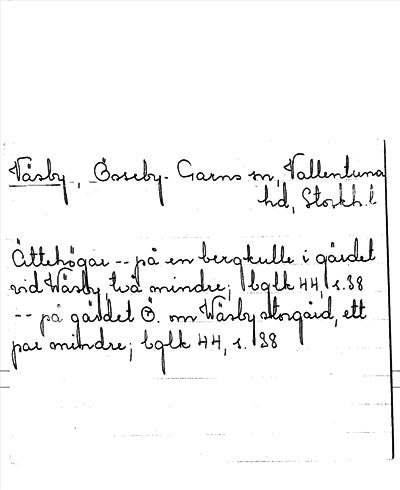 Väsby, Össeby-Garns sn, Vallentuna
hd, Stockh. l
Ättehögar -- på en bergkulle i gärdet
vid Wäsby, två mindre; bglk 44, s. 38
-- på gärdet Ö. om Wäsby storgård, ett
par mindre; bglk 44, s. 38